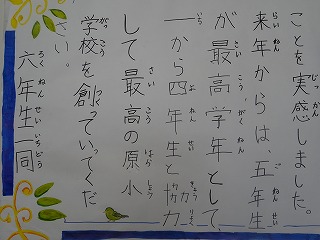 ことを実感しました。
来年からは、五年生
が最高学年として、
一から四年生と協力
して最高の原小
学校を創っていってくだ
さい。
六年生一同